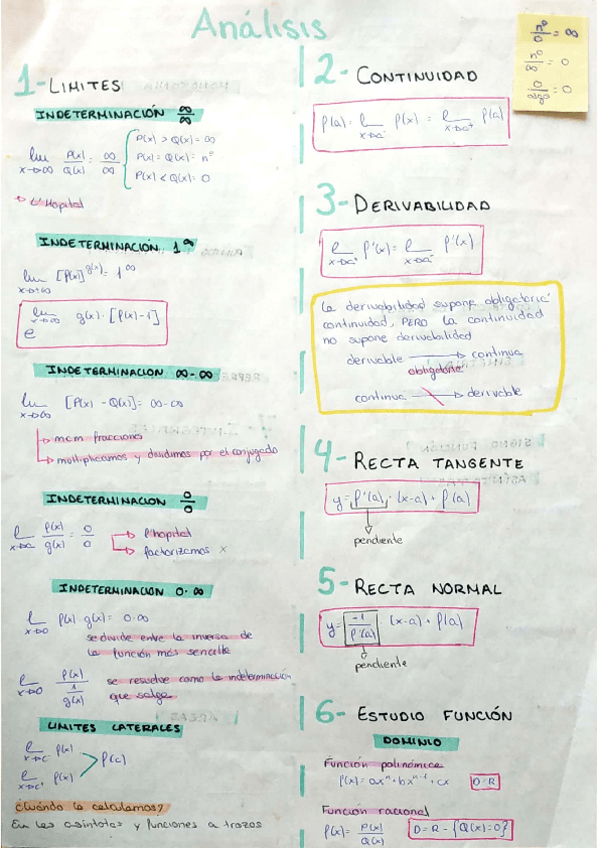 Análisis
nº/0 = ∞
nº/∞ = 0
0/algo = 0
1- LIMITES
INDETERMINACIÓN ∞/∞
lim x→∞ P(x)/Q(x) = ∞/∞
P(x) > Q(x) = ∞
P(x) = Q(x) = nº
P(x) < Q(x) = 0
→ L'Hopital
INDETERMINACIÓN 1^∞
lim x→∞ [P(x)]^g(x) = 1^∞
e^lim x→∞ g(x)·[P(x)-1]
INDETERMINACION ∞-∞
lim x→∞ [P(x) - Q(x)] = ∞-∞
→ mcm fracciones
→ multiplicamos y dividimos por el conjugado
INDETERMINACION 0/0
l x→a P(x)/g(x) = 0/0
→ l'hopital
→ factorizamos x
INDETERMINACION 0·∞
l x→0 P(x)·g(x) = 0·∞
se divide entre la inversa de
la función más sencilla
l x→0 P(x)/1/g(x)
se resuelve como la indeterminación
que salga
LIMITES LATERALES
l x→c⁻ P(x)
l x→c⁺ P(x)
> P(c)
¿Cuándo lo calculamos?
En las asíntotas y funciones a trozos
2- CONTINUIDAD
P(a) = l x→a⁻ P(x) = l x→a⁺ P(a)
3- DERIVABILIDAD
l x→a⁺ P'(x) = l x→a⁻ P'(x)
La derivabilidad supone obligatoria
continuidad, PERO la continuidad
no supone derivabilidad
derivable → continua
obligatoria
continua → derivable
4- RECTA TANGENTE
y = P'(a) · (x-a) + P(a)
pendiente
5- RECTA NORMAL
y = -1/P'(a) (x-a) + P(a)
pendiente
6- ESTUDIO FUNCIÓN
DOMINIO
Función polinómica
P(x) = ax^n + bx^n-1 + cx D=R
Función racional
P(x) = P(x)/Q(x) D=R-{Q(x)=0}